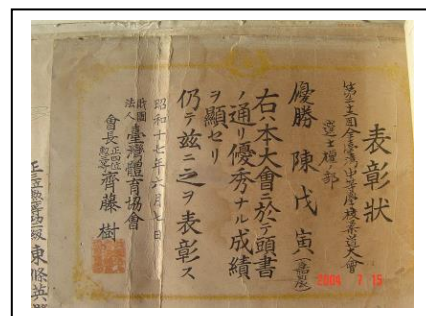 表彰狀
全臺灣中等學校柔道大會
選士權ノ部
優勝 陳戊寅 (嘉農)
右ハ本大會ニ於テ頭書
ノ通リ優秀ナル成績
ヲ顯セリ
仍テ茲ニ之ヲ表彰ス
昭和十七年六月七日
財團法人 臺灣體育協會
會長 正四位 齊藤樹
東條英
2004 7 15